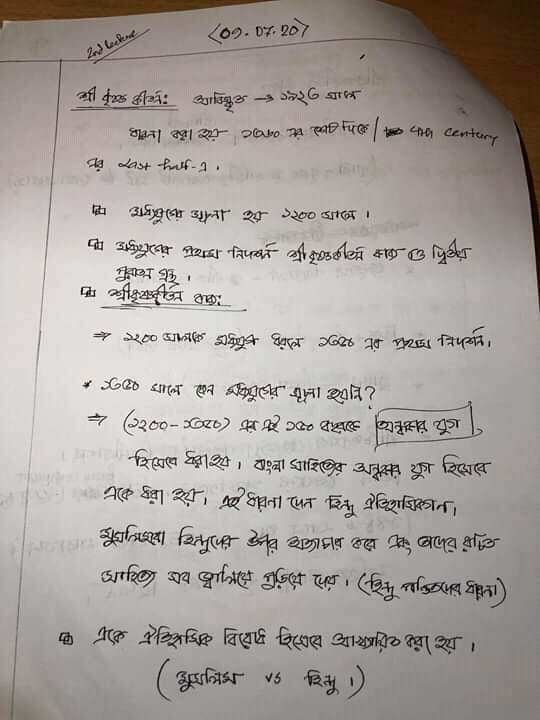 2nd Lecture
<09.07.20>
শ্রী কৃষ্ণ কীর্তন: আবিষ্কৃত → ১৯১৬ সালে
ধারনা করা হয় ১৩৫০ এর শেষ দিকে / 14th century
এর Last half-এ।
মধ্যযুগের সূচনা হয় ১২০০ সালে।
মধ্যযুগের প্রথম নিদর্শন শ্রীকৃষ্ণকীর্তন কাব্য ও দ্বিতীয়
গ্রন্থ।
শ্রীকৃষ্ণকীর্তন কাব্য:
⇒ ১২০০ সালকে মধ্যযুগ ধরলে ১৩৫০ এর প্রথম নিদর্শন।
* ১৩৫০ সালে কেন মধ্যযুগের সূচনা হয়নি?
⇒ (১২০০-১৩৫০) এর এই ১৫০ বছরকে অন্ধকার যুগ
হিসেবে ধরা হয়। বাংলা সাহিত্যের অন্ধকার যুগ হিসেবে
একে ধরা হয়। এই ধারনা দেন হিন্দু ঐতিহাসিকগন,
মুসলিমরা হিন্দুদের উপর অত্যাচার করে এবং তাদের রচিত
সাহিত্য সব জ্বালিয়ে পুড়িয়ে দেয়। (হিন্দু পন্ডিতদের ধারনা)
একে ঐতিহাসিক বিরোধ হিসেবে আখ্যায়িত করা হয়।
(মুসলিম vs হিন্দু।)